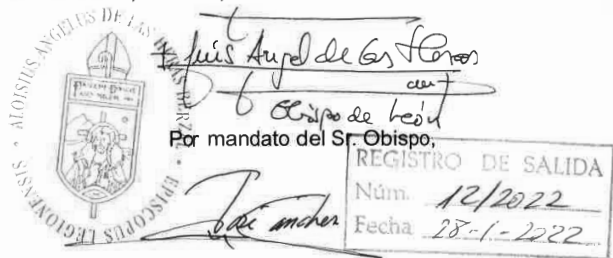 ALOISIUS ANGELUS DE LAS HERAS BERZAL * EPISCOPUS LEGIONENSIS *
+ Luis Angel de las Heras
cmf
Obispo de León
Por mandato del Sr. Obispo,
REGISTRO DE SALIDA
Núm. 12/2022
Fecha 28-1-2022